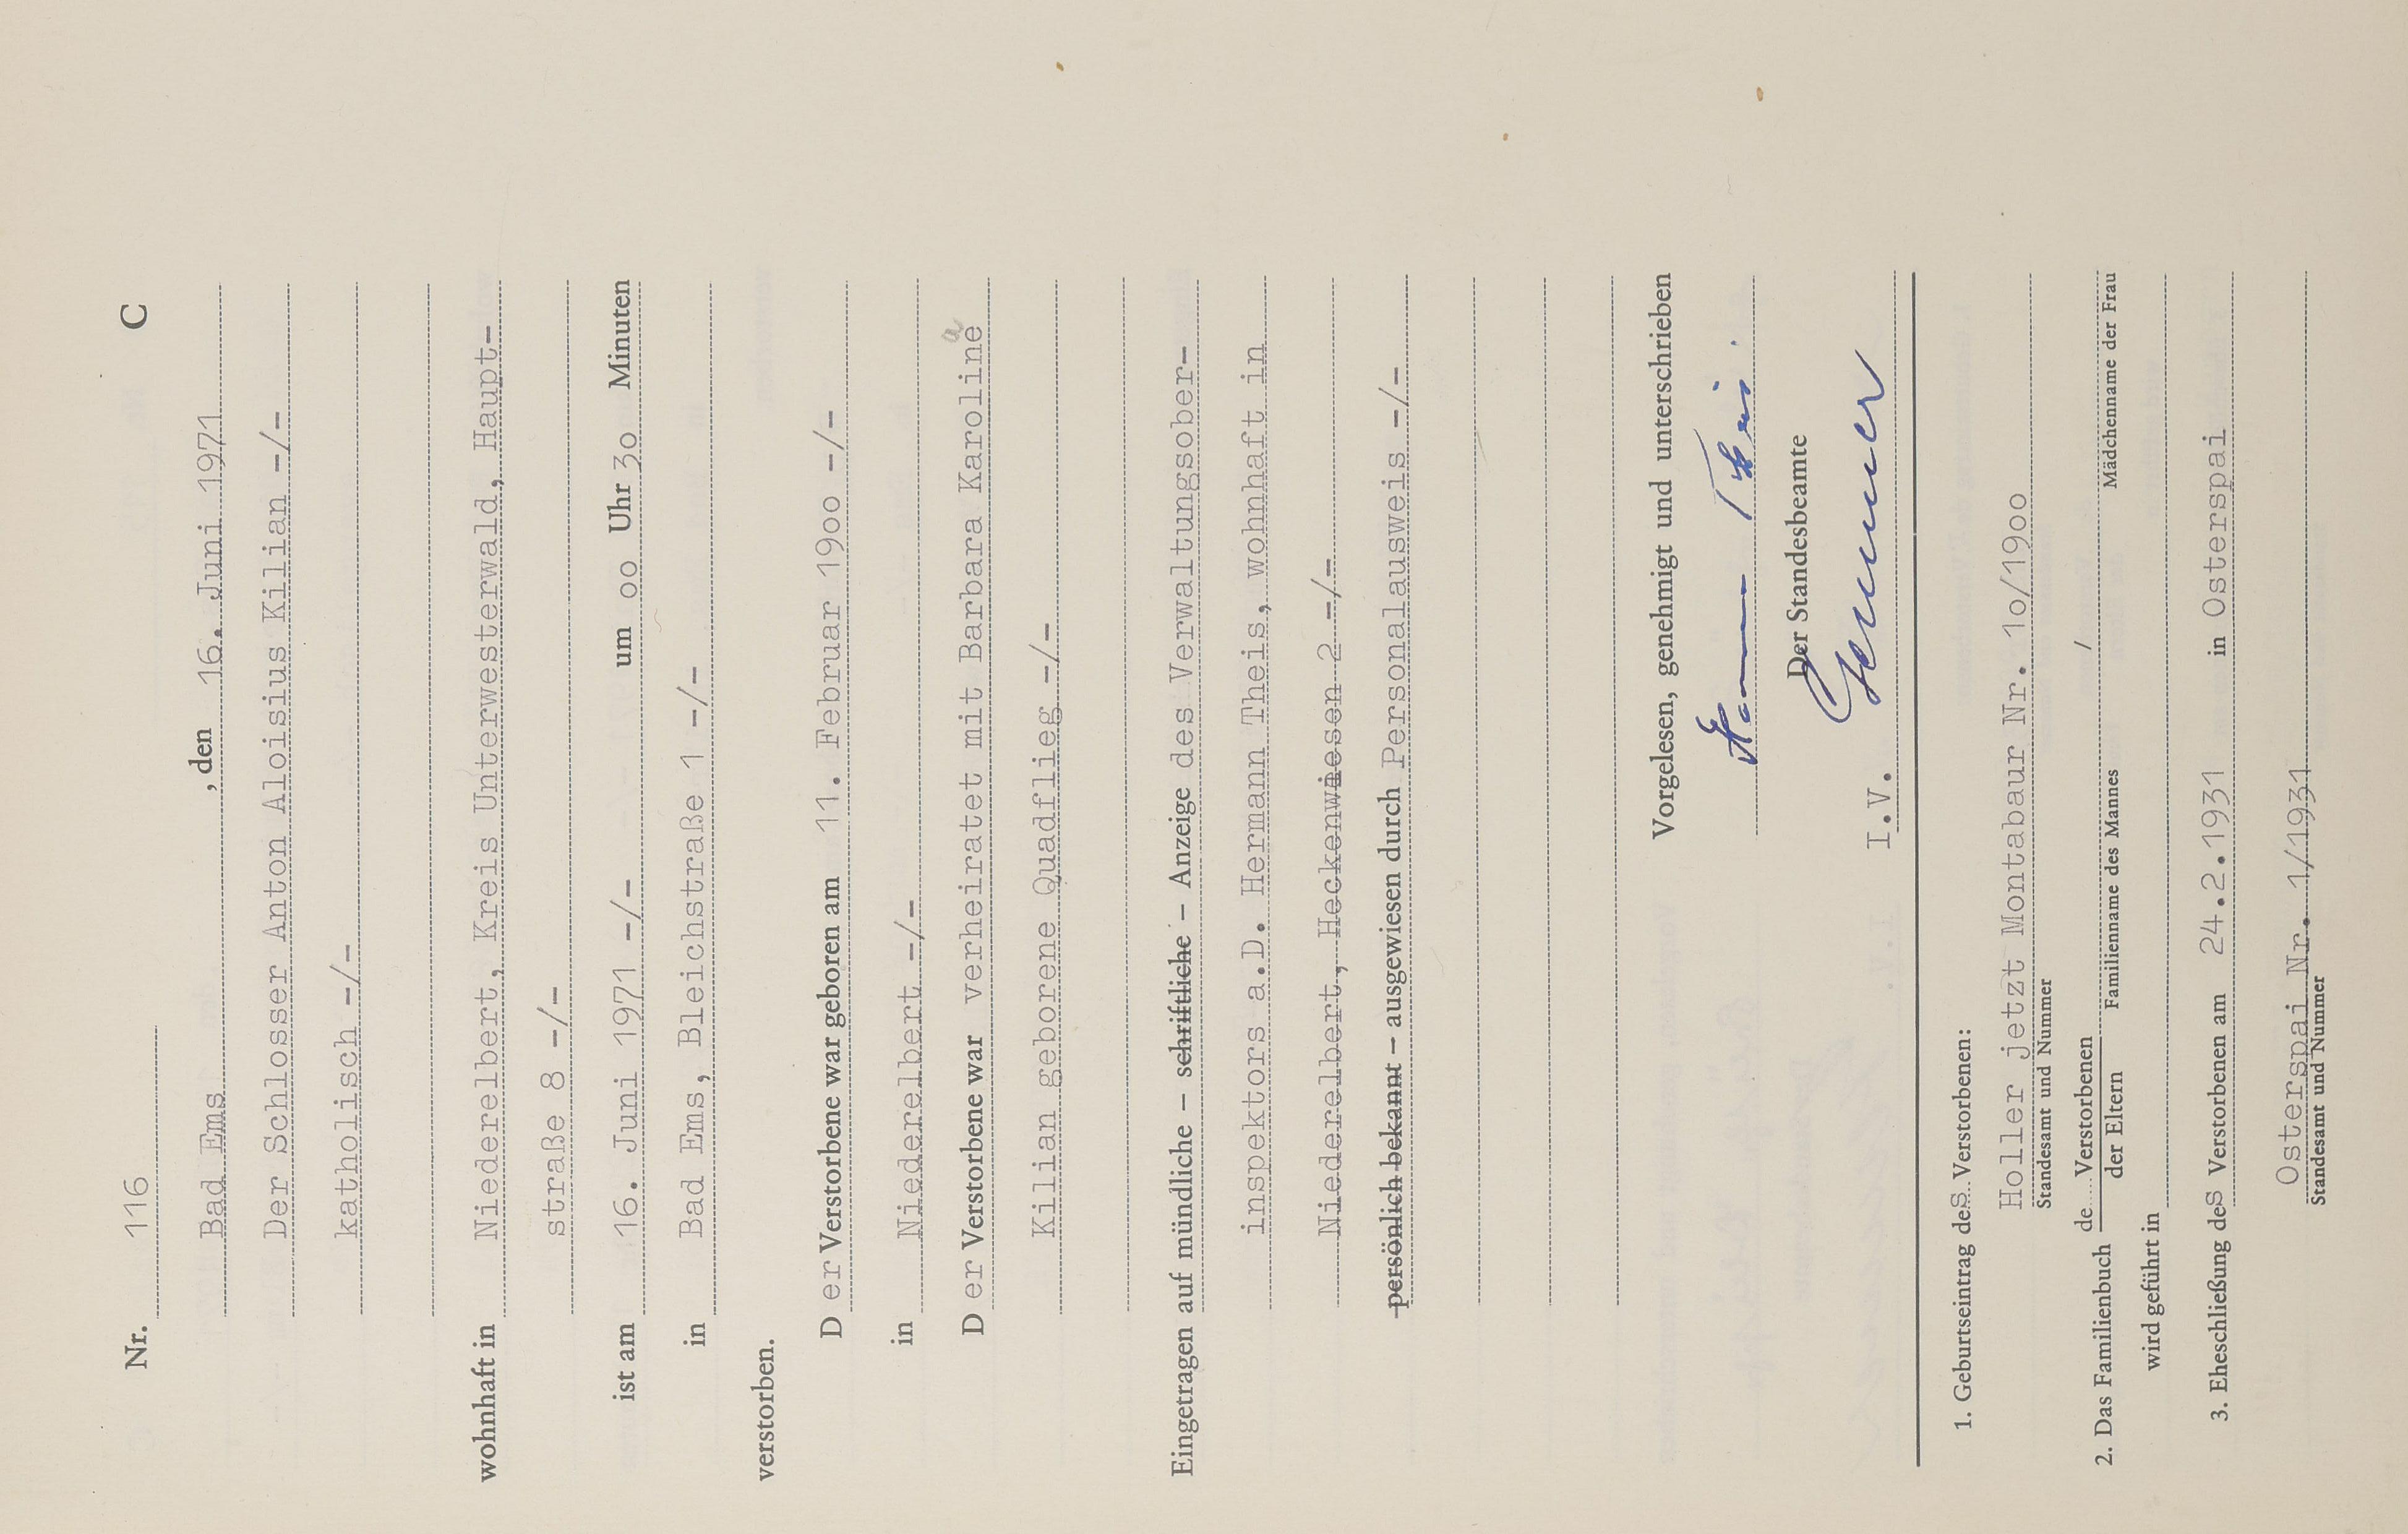 Nr. 116 C
Bad Ems , den 16. Juni 1971
Der Schlosser Anton Aloisius Kilian -/-
katholisch -/-
wohnhaft in Niederelbert, Kreis Unterwesterwald, Haupt-
straße 8 -/-
ist am 16. Juni 1971 -/- um oo Uhr 3o Minuten
in Bad Ems, Bleichstraße 1 -/-
verstorben.
D er Verstorbene war geboren am 11. Februar 19oo -/-
in Niederelbert -/-
D er Verstorbene war verheiratet mit Barbara Karoline a
Kilian geborene Quadflieg -/-
Eingetragen auf mündliche – schriftliche – Anzeige des Verwaltungsober-
inspektors a.D. Hermann Theis, wohnhaft in
Niederelbert, Heckenwiesen 2 -/-
persönlich bekannt – ausgewiesen durch Personalausweis -/-
Vorgelesen, genehmigt und unterschrieben
Hermann Theis.
Der Standesbeamte
I.V.
1. Geburtseintrag des Verstorbenen:
Holler jetzt Montabaur Nr. 1o/19oo
Standesamt und Nummer
2. Das Familienbuch de Verstorbenen /
der Eltern Familienname des Mannes Mädchenname der Frau
wird geführt in
3. Eheschließung des Verstorbenen am 24.2.1931 in Osterspai
Osterspai Nr. 1/1931
Standesamt und Nummer